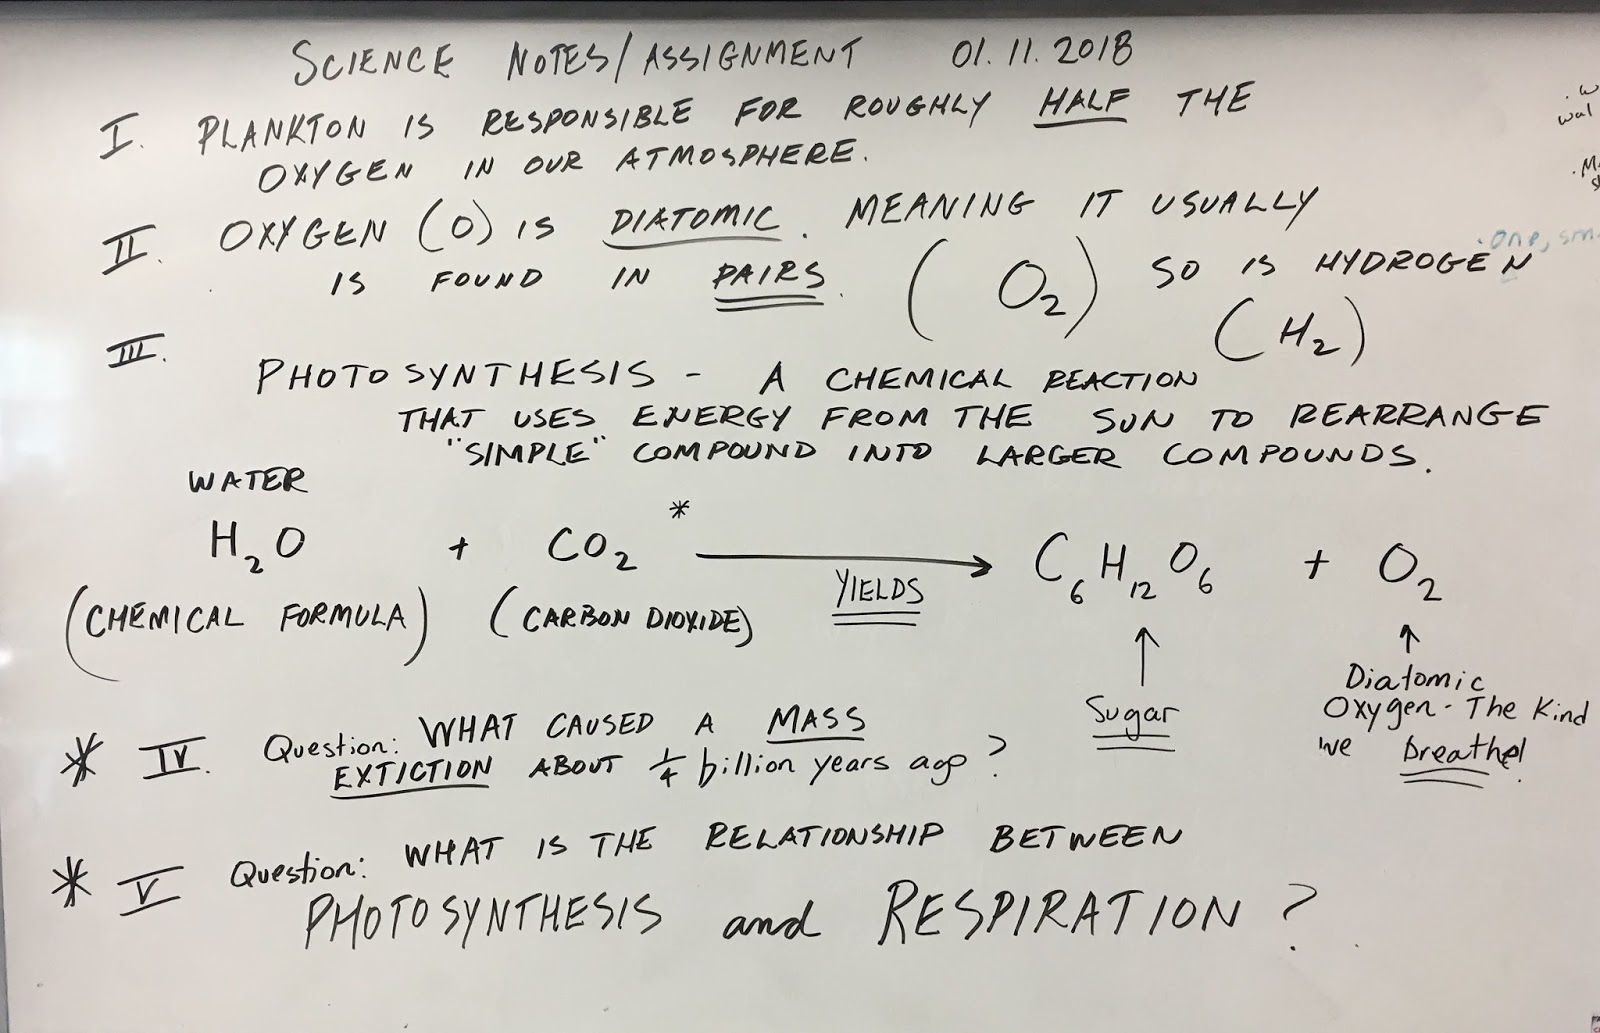 SCIENCE NOTES/ASSIGNMENT 01.11.2018
I. PLANKTON IS RESPONSIBLE FOR ROUGHLY HALF THE
OXYGEN IN OUR ATMOSPHERE.
II. OXYGEN (O) IS DIATOMIC. MEANING IT USUALLY
IS FOUND IN PAIRS. (O₂) SO IS HYDROGEN
(H₂)
III.
PHOTOSYNTHESIS - A CHEMICAL REACTION
THAT USES ENERGY FROM THE SUN TO REARRANGE
"SIMPLE" COMPOUND INTO LARGER COMPOUNDS.
WATER
H₂O + CO₂ * → C₆H₁₂O₆ + O₂
(CHEMICAL FORMULA) (CARBON DIOXIDE) YIELDS
↑ Sugar
↑ Diatomic
Oxygen - The Kind
we breathe!
* IV. Question: WHAT CAUSED A MASS
EXTICTION ABOUT ¼ billion years ago?
* V Question: WHAT IS THE RELATIONSHIP BETWEEN
PHOTOSYNTHESIS and RESPIRATION?
One,